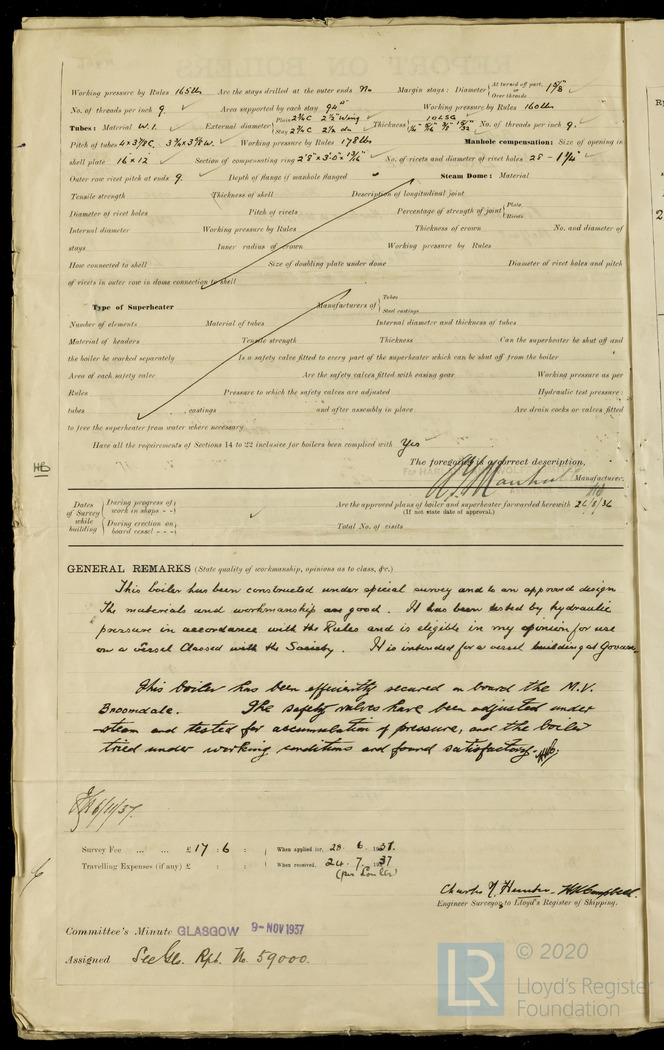 Working pressure by Rules 165 lbs Are the stays drilled at the outer ends No Margin stays: Diameter { At turned off part, or Over threads 1 5/8" ✓
No. of threads per inch 9. Area supported by each stay 94 □" Working pressure by Rules 160 lbs
Tubes: Material W.I. External diameter { Plain 2 3/4 C 2 1/2" Wing Stay 2 3/4 C 2 1/2 do Thickness { 10 LSG No. of threads per inch 9.
Pitch of tubes 4 x 3 7/8 C. 3 3/4 x 3 5/8 W. Working pressure by Rules 178 lbs Manhole compensation: Size of opening in
shell plate 16 x 12 Section of compensating ring 2'8" x 3'0" x 13/16" No. of rivets and diameter of rivet holes 28 - 1 1/4"
Outer row rivet pitch at ends 9. Depth of flange if manhole flanged Steam Dome: Material
Tensile strength Thickness of shell Description of longitudinal joint
Diameter of rivet holes Pitch of rivets Percentage of strength of joint { Plate Rivets
Internal diameter Working pressure by Rules Thickness of crown No. and diameter of
stays Inner radius of crown Working pressure by Rules
How connected to shell Size of doubling plate under dome Diameter of rivet holes and pitch
of rivets in outer row in dome connection to shell
Type of Superheater Manufacturers of { Tubes Steel castings
Number of elements Material of tubes Internal diameter and thickness of tubes
Material of headers Tensile strength Thickness Can the superheater be shut off and
the boiler be worked separately Is a safety valve fitted to every part of the superheater which can be shut off from the boiler
Area of each safety valve Are the safety valves fitted with easing gear Working pressure as per
Rules Pressure to which the safety valves are adjusted Hydraulic test pressure:
tubes , castings and after assembly in place Are drain cocks or valves fitted
to free the superheater from water where necessary
Have all the requirements of Sections 14 to 22 inclusive for boilers been complied with Yes
The foregoing is a correct description,
Manufacturer.
Dates of Survey while building { During progress of work in shops - - During erection on board vessel - - - ✓ Are the approved plans of boiler and superheater forwarded herewith 26/8/36
(If not state date of approval.)
Total No. of visits
GENERAL REMARKS (State quality of workmanship, opinions as to class, &c.)
This boiler has been constructed under special survey and to an approved design
The materials and workmanship are good. It has been tested by hydraulic
pressure in accordance with the Rules and is eligible in my opinion for use
on a vessel Classed with the Society. It is intended for a vessel building at Govan.
This boiler has been efficiently secured on board the M.V.
Broomdale. The safety valves have been adjusted under
steam and tested for accumulation of pressure, and the boiler
tried under working conditions and found satisfactory.
6/11/37.
Survey Fee ... ... £ 17 : 6 : When applied for, 28 . 6 . 1937.
Travelling Expenses (if any) £ : : When received, 24 . 7 . 1937
Charles N. Hunter. H Campbell.
Engineer Surveyors to Lloyd's Register of Shipping.
Committee's Minute GLASGOW 9-NOV 1937
Assigned See Gls. Rpt. No. 59000.
© 2020
LR
Lloyd's Register
Foundation